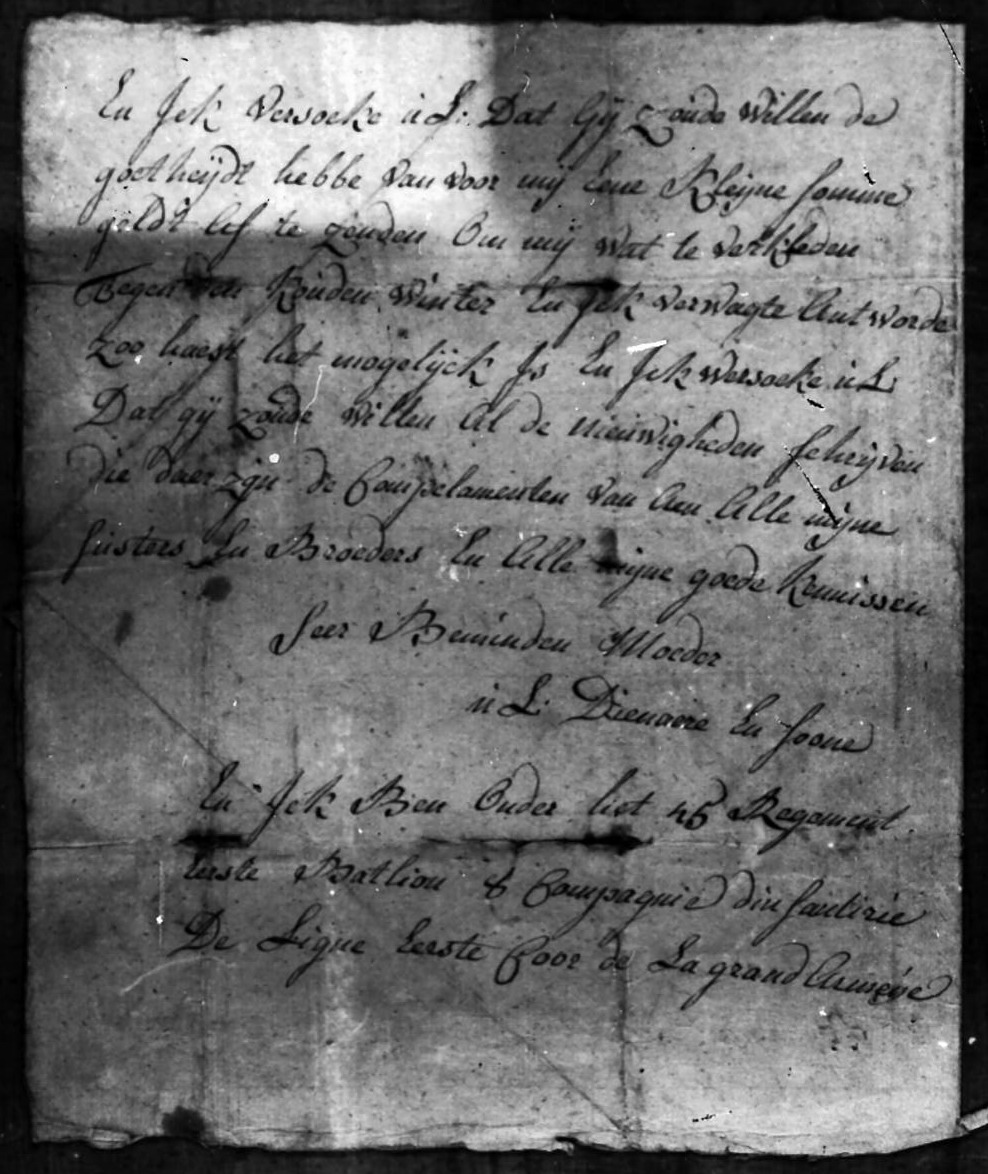 En Jek Versoeke uL: Dat Gij zoude willen de
goetheijdt hebbe van voor mij Eene Kleijne somme
geldt Af te zenden Om mij wat te verkleden
Tegen den Kouden winter En Jek verwagte Antworde
zoo haest het mogelijck Js En Jek versoeke uL
Dat gij zoude willen Al de nieuwigheden schrijven
die daer zijn de Compelamenten van Aen Alle mijne
susters En Broeders En Alle mijne goede kennissen
Seer Beminden Moeder
uL: Dienaere En soone
En Jek Bien Onder het 46 Regement
Eerste Batlion 8 Compagnie dinfantirie
De Ligne Eerste Coor de La grand Armeije